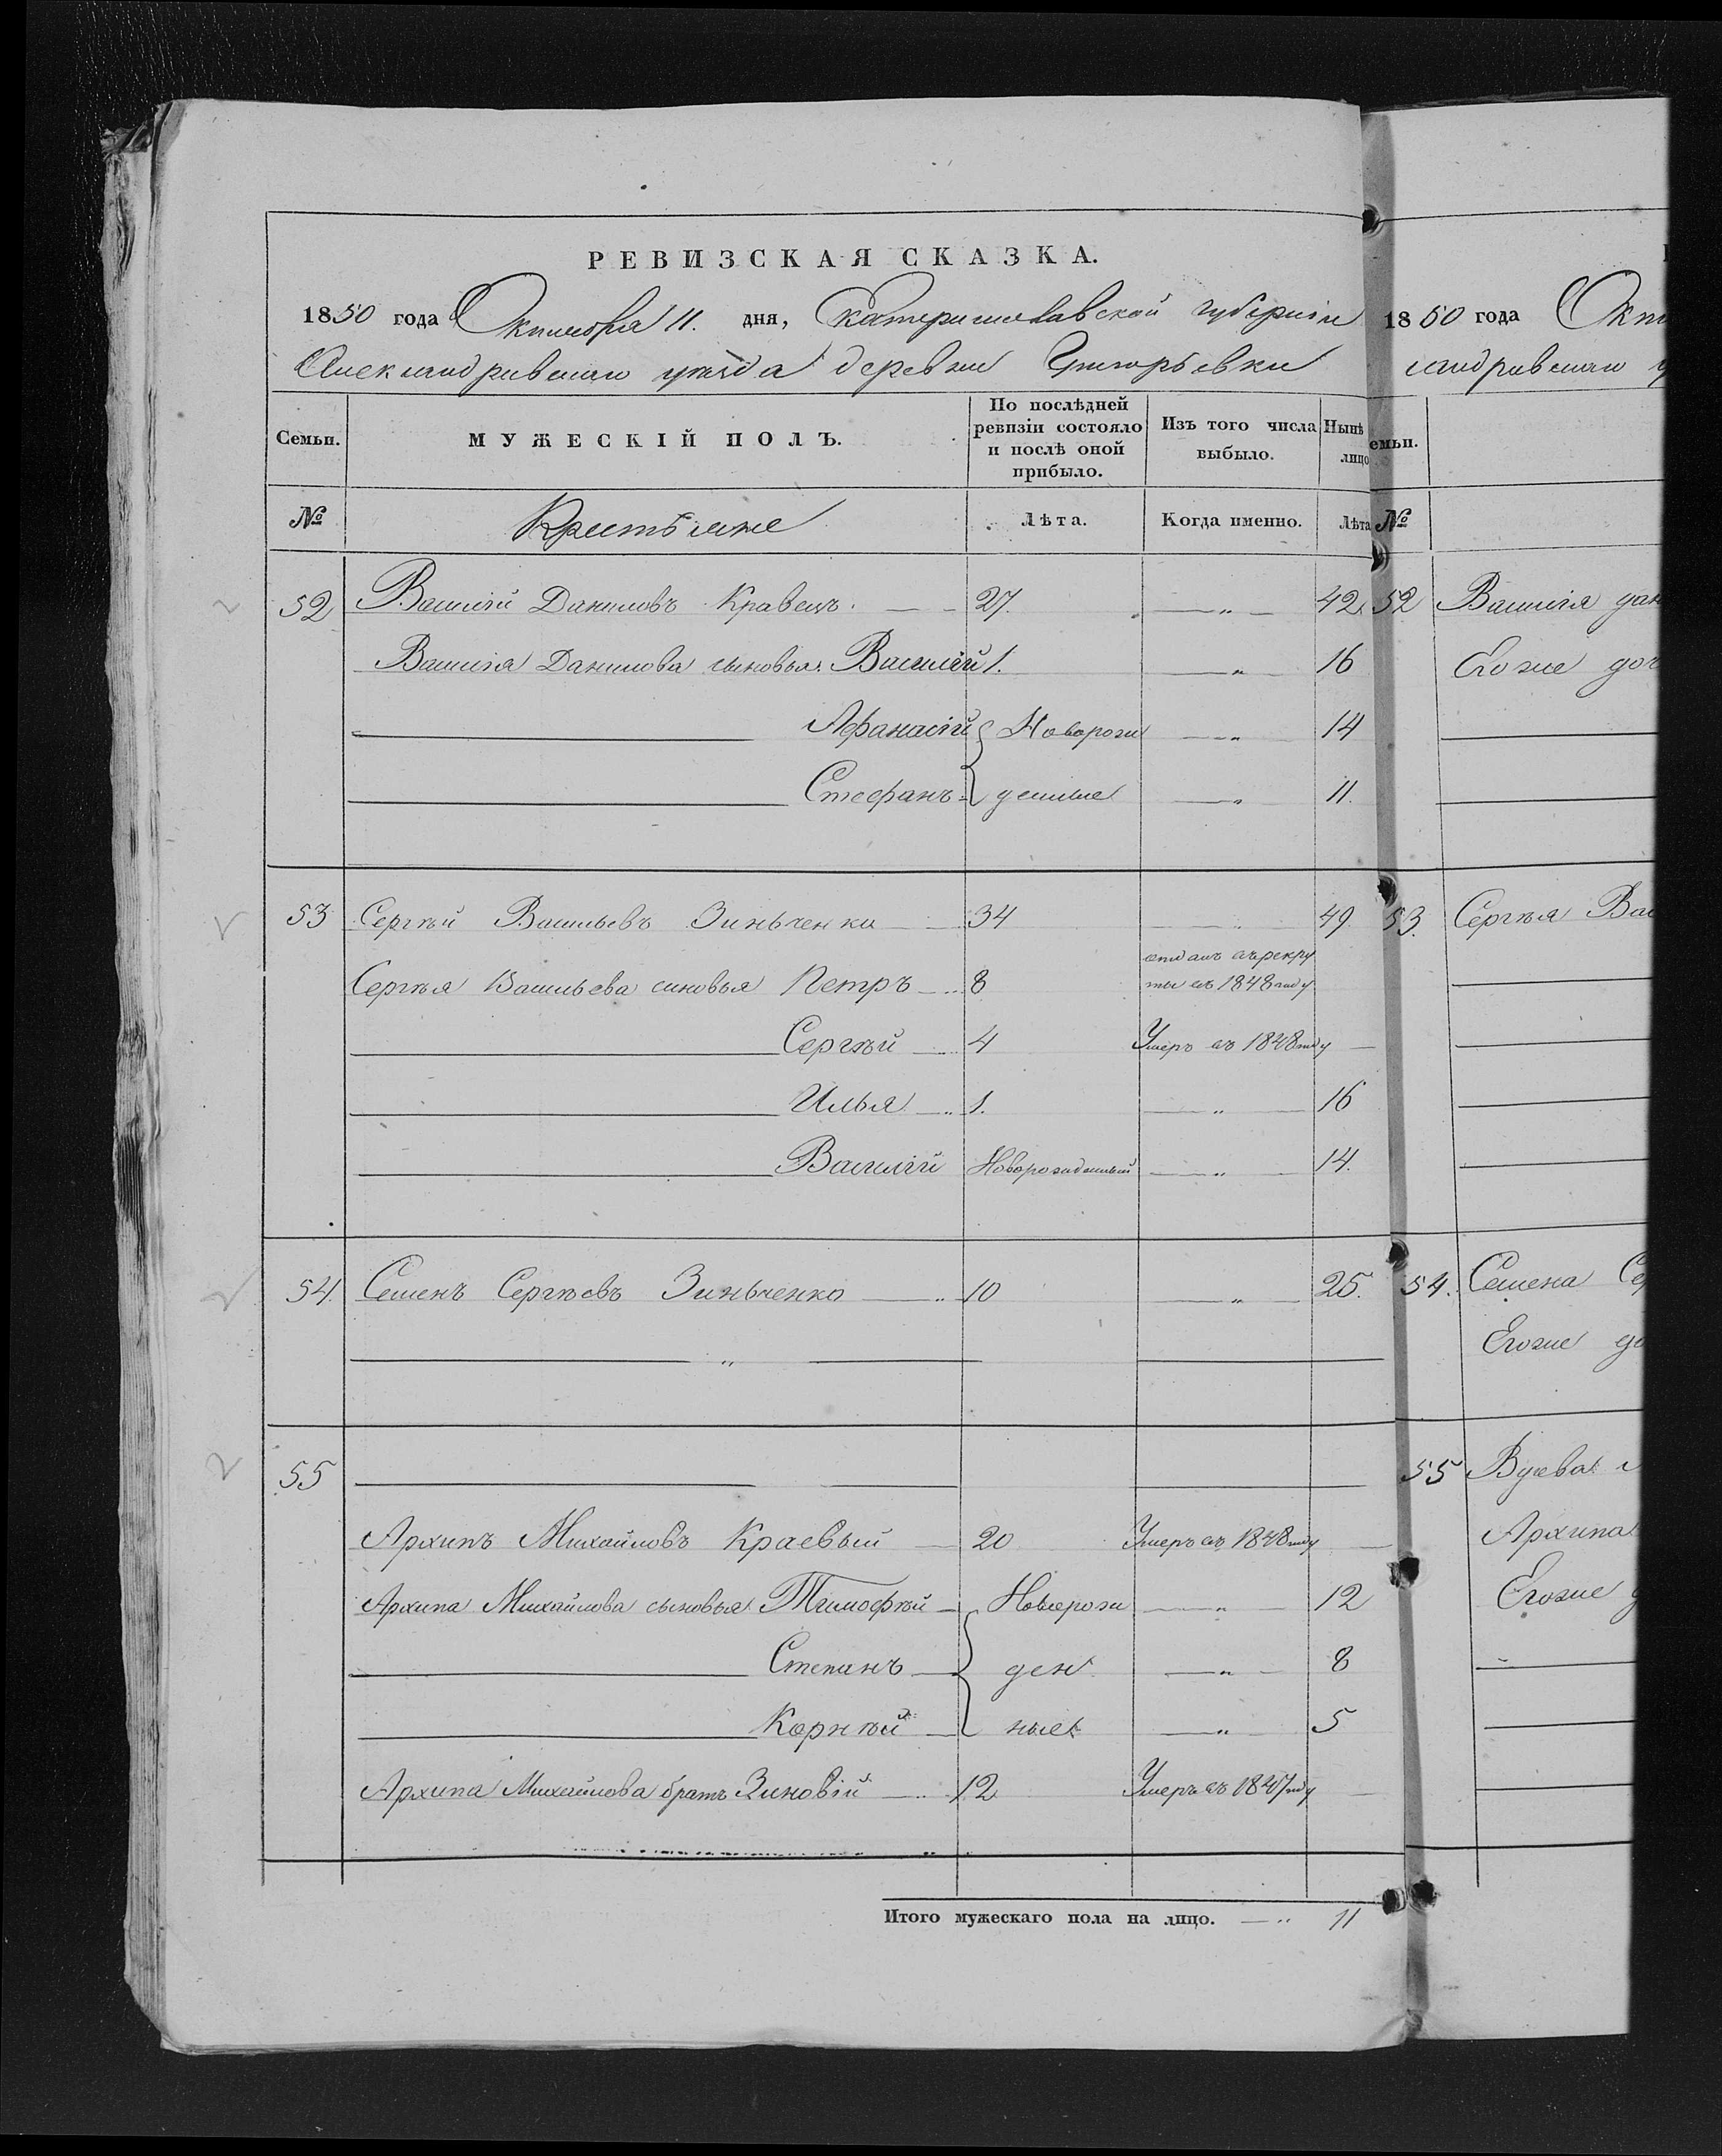 РЕВИЗСКАЯ СКАЗКА.
1850 года Октября 11. дня, Екатеринославской губернiи
Александровскаго уѣзда деревни Григорьевки
Семьи. МУЖЕСКIЙ ПОЛЪ. По послѣдней ревизiи состояло и послѣ оной прибыло. Изъ того числа выбыло. Нынѣ лицо
№ Крестьяне Лѣта. Когда именно. Лѣта
52 Василiй Даниловъ Кравецъ. 27. — „ — 42.
Василiя Данилова сыновья. Василiй 1. — „ — 16
Афанасiй Новорож — „ 14
Стефанъ денные — „ 11.
53 Сергѣй Васильевъ Зиньченко 34 — „ — 49.
отданъ въ рекру
Сергѣя Васильева синовья Петръ 8 ты въ 1848 году
Сергѣй 4 Умеръ въ 1848 году —
Илья 1. — „ — 16
Василiй Новорожденный — „ — 14.
54. Семенъ Сергѣевъ Зиньченко 10 — „ — 25.
„
55
Архипъ Михайловъ Краевый 20 Умеръ въ 1848 году —
Архипа Михайлова сыновья Тимофѣй Новорож — „ — 12
Степанъ ден — „ — 8
Корнѣй ные — „ — 5
Архипа Михайлова братъ Зиновiй 12 Умеръ въ 1847 году —
Итого мужескаго пола на лицо. — „ 11
1850 года Окт
сандровскаго у
емьи.
№
52 Василiя Дан
Егоже доч
53. Сергѣя Вас
54. Семена Се
Егоже до
55 Вдова
Архипа
Егоже д